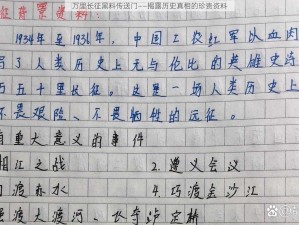 万里长征黑料传送门——揭露历史真相的珍贵资料
征背景资料:
1934年至1936年,中国工农红军以血肉
写了人类历史上无与伦比的英雄史诗
万五千里长征。这是一场人类历史上
畏艰险、不畏牺牲的远征。
有重大意义的事件
湘江之战 2. 遵义会议
渡赤水 4. 巧渡金沙江
强渡大渡河、飞夺泸定桥